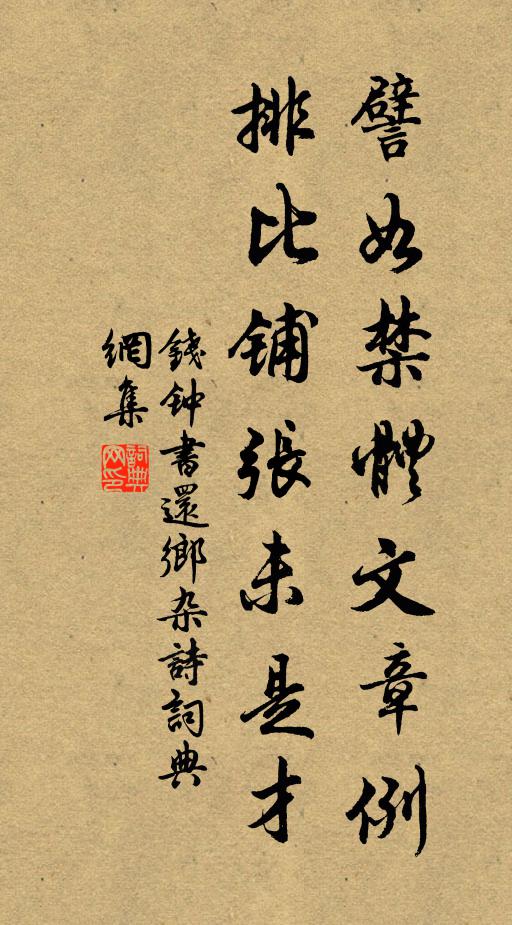 譬如禁體文章例
排比铺張未是才
錢钟書還鄉杂詩詞典
網集
詞典网印